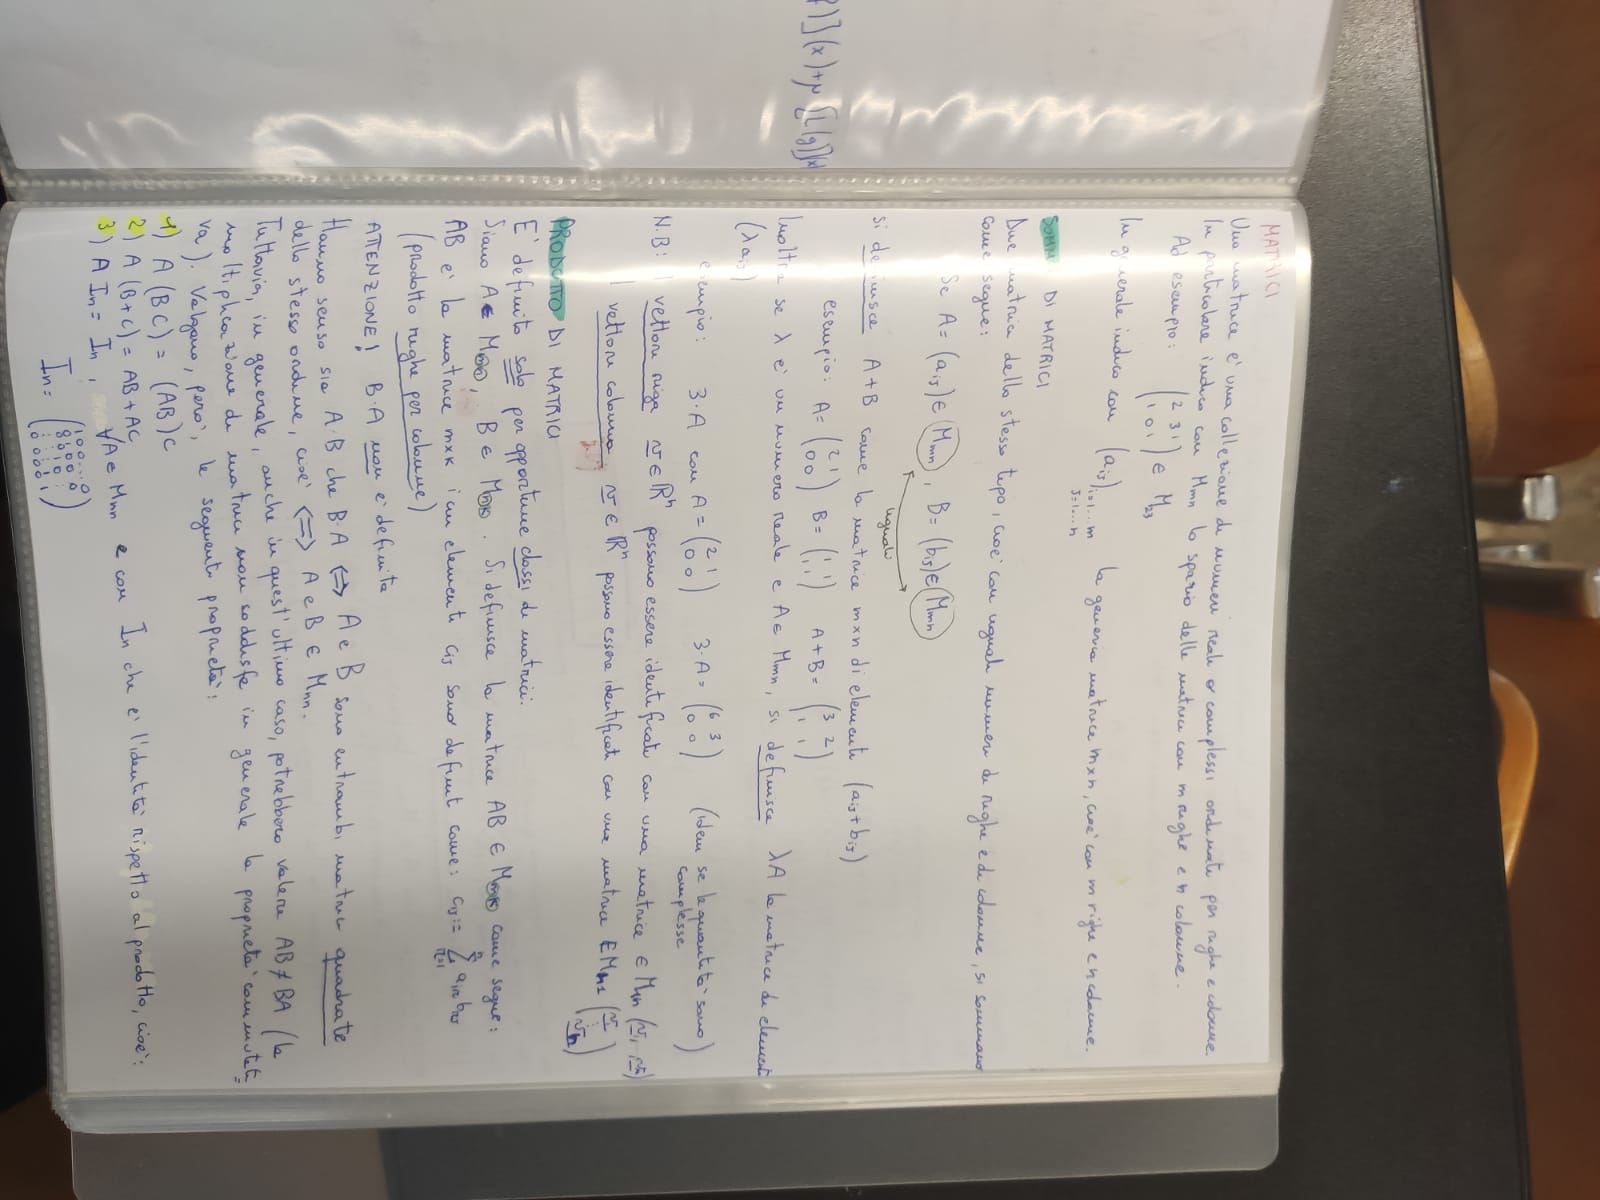 MATRICI
Una matrice è una collezione di numeri reali o complessi ordinati per righe e colonne
In particolare indico con Mmn lo spazio delle matrici con m righe e n colonne.
Ad esempio: (2 3 1 / 1 0 1) ∈ M23
In generale indico con (aij) i=1...m j=1...n la generica matrice m×n, cioè con m righe e n colonne.
SOMMA DI MATRICI
Due matrici dello stesso tipo, cioè con uguali numeri di righe e di colonne, si sommano
come segue:
Se A = (aij) ∈ Mmn, B = (bij) ∈ Mmn
uguali
si definisce A+B come la matrice m×n di elementi (aij + bij)
esempio: A = (2 1 / 0 0) B = (1 1 / 1 1) A+B = (3 2 / 1 1)
Inoltre se λ è un numero reale e A∈ Mmn, si definisce λA la matrice di elementi
(λaij)
esempio: 3·A con A = (2 1 / 0 0) 3·A = (6 3 / 0 0) (idem se le quantità sono
complesse)
N.B: I vettori riga v ∈ ℝⁿ possono essere identificati con una matrice ∈ M1n (v1...vn)
I vettori colonna v ∈ ℝⁿ possono essere identificati con una matrice ∈ Mn1 (v1 ⋮ vn)
PRODOTTO DI MATRICI
E' definito solo per opportune classi di matrici.
Siano A∈ Mmn, B ∈ Mnk. Si definisce la matrice AB ∈ Mmk come segue:
AB è la matrice m×k i cui elementi cij sono definiti come: cij := Σ
(prodotto righe per colonne)
ATTENZIONE! B·A non è definita
Hanno senso sia A·B che B·A ⟺ A e B sono entrambi matrici quadrate
dello stesso ordine, cioè ⟺ A e B ∈ Mnn.
Tuttavia, in generale, anche in quest'ultimo caso, potrebbero valere AB ≠ BA (la
moltiplicazione di matrici non soddisfa in generale la proprietà commutati=
va). Valgono, però, le seguenti proprietà:
1) A(BC) = (AB)C
2) A(B+C) = AB+AC
3) A In = In, ∀A ∈ Mnn e con In che è l'identità rispetto al prodotto, cioè:
In = (1 0 0 ... 0